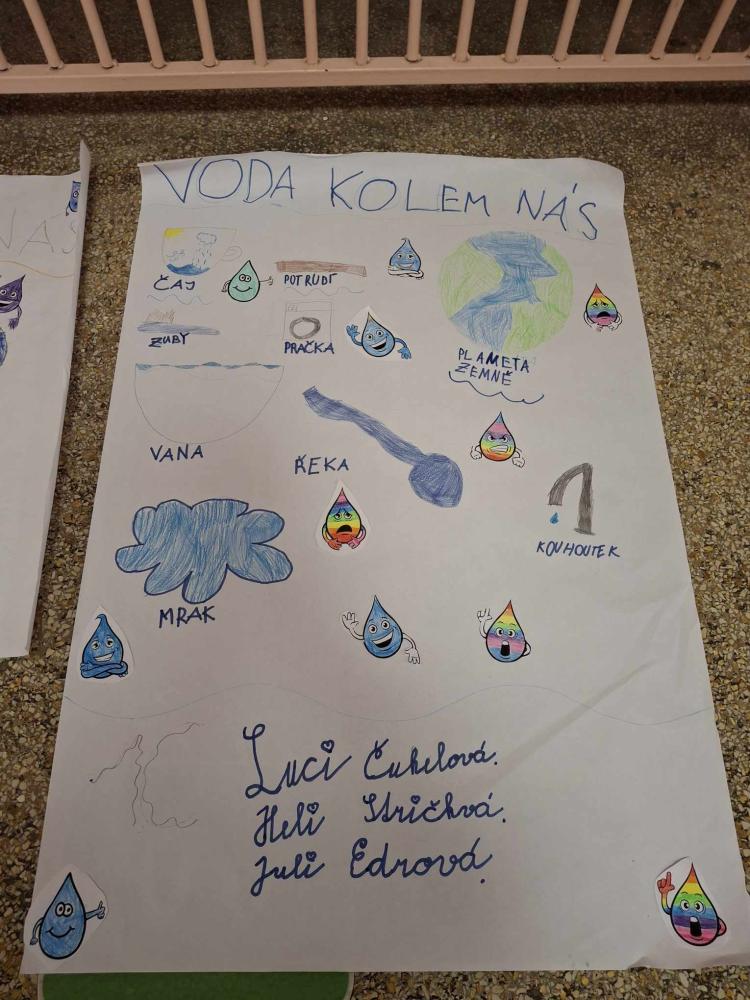 VODA KOLEM NÁS
ČAJ
POTRUBÍ
ZUBY
PRAČKA
PLAMETA
ZEMNĚ
VANA
ŘEKA
KOUHOUTEK
MRAK
Luci Čuhelová.
Heli
Juli Edrová.
NÁS